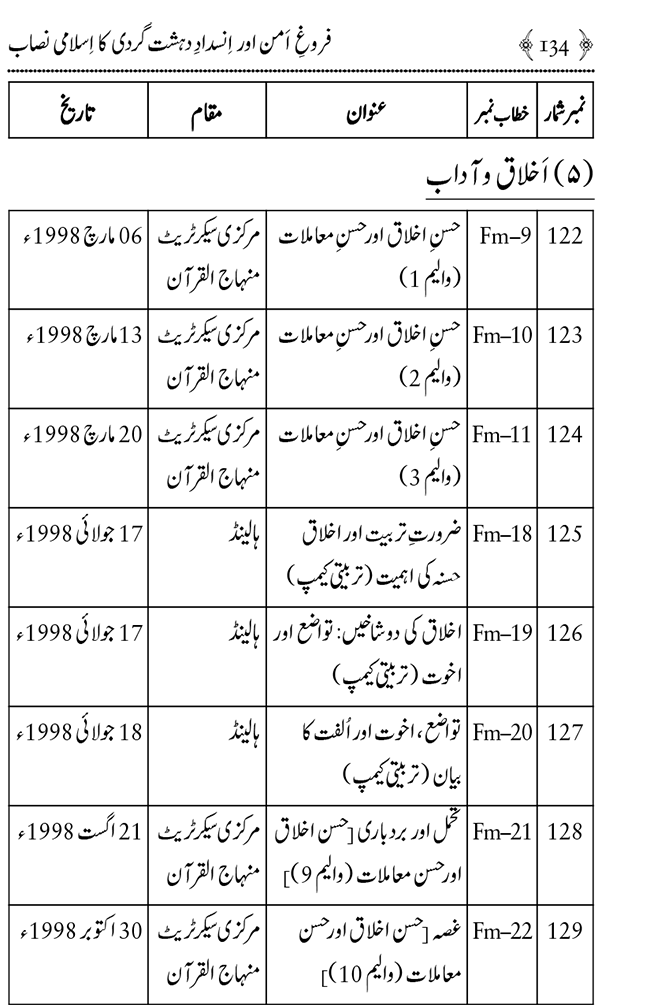 ﴿ 134 ﴾ فروغِ اَمن اور اِنسدادِ دہشت گردی کا اِسلامی نصاب
نمبر شمار خطاب نمبر عنوان مقام تاریخ
(۵) اَخلاق و آداب
122 Fm–9 حسنِ اخلاق اور حسنِ معاملات مرکزی سیکرٹریٹ 06 مارچ 1998ء
(والیم 1) منہاج القرآن
123 Fm–10 حسنِ اخلاق اور حسنِ معاملات مرکزی سیکرٹریٹ 13 مارچ 1998ء
(والیم 2) منہاج القرآن
124 Fm–11 حسنِ اخلاق اور حسنِ معاملات مرکزی سیکرٹریٹ 20 مارچ 1998ء
(والیم 3) منہاج القرآن
125 Fm–18 ضرورتِ تربیت اور اخلاق ہالینڈ 17 جولائی 1998ء
حسنہ کی اہمیت (تربیتی کیمپ)
126 Fm–19 اخلاق کی دو شاخیں: تواضع اور ہالینڈ 17 جولائی 1998ء
اخوت (تربیتی کیمپ)
127 Fm–20 تواضع، اخوت اور اُلفت کا ہالینڈ 18 جولائی 1998ء
بیان (تربیتی کیمپ)
128 Fm–21 تحمل اور بردباری [حسن اخلاق مرکزی سیکرٹریٹ 21 اگست 1998ء
اور حسن معاملات (والیم 9)] منہاج القرآن
129 Fm–22 غصہ [حسن اخلاق اور حسن مرکزی سیکرٹریٹ 30 اکتوبر 1998ء
معاملات (والیم 10)] منہاج القرآن